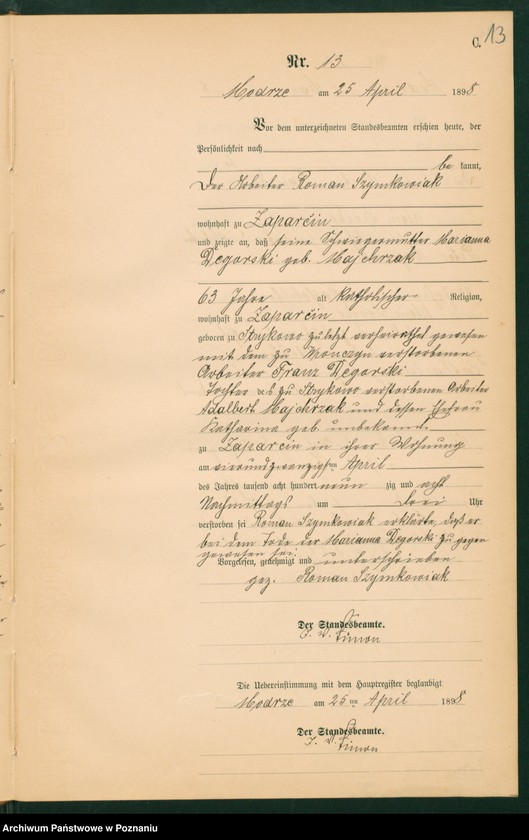 C. 13
Nr. 13
Modrze am 25 April 1898
Vor dem unterzeichneten Standesbeamten erschien heute, der
Persönlichkeit nach
be kannt,
Der Arbeiter Roman Szymkowiak
wohnhaft zu Zaparcin
und zeigte an, daß seine Schwiegermutter Marianna
Degorski geb. Majchrzak
63 Jahre alt katholischer Religion,
wohnhaft zu Zaparcin
geboren zu Strykowo zuletzt verheirathet gewesen
mit dem zu verstorbenen
Arbeiter Franz Degorski
Tochter des zu Strykowo verstorbenen Arbeiter
Adalbert Majchrzak und dessen Ehefrau
Katharina geb. unbekannt.
zu Zaparcin in ihrer Wohnung
am vierundzwanzigsten April
des Jahres tausend acht hundert neun zig und acht
Nachmittags um drei Uhr
verstorben sei Roman Szymkowiak erklärte, daß er
bei dem Tode der Marianna Degorski zu gegen
gewesen sei.
Vorgelesen, genehmigt und unterschrieben
gez. Roman Szymkowiak
Der Standesbeamte.
J. V. Timon
Die Uebereinstimmung mit dem Hauptregister beglaubigt
Modrze am 25ten April 1898
Der Standesbeamte.
J. V. Timon
Archiwum Państwowe w Poznaniu